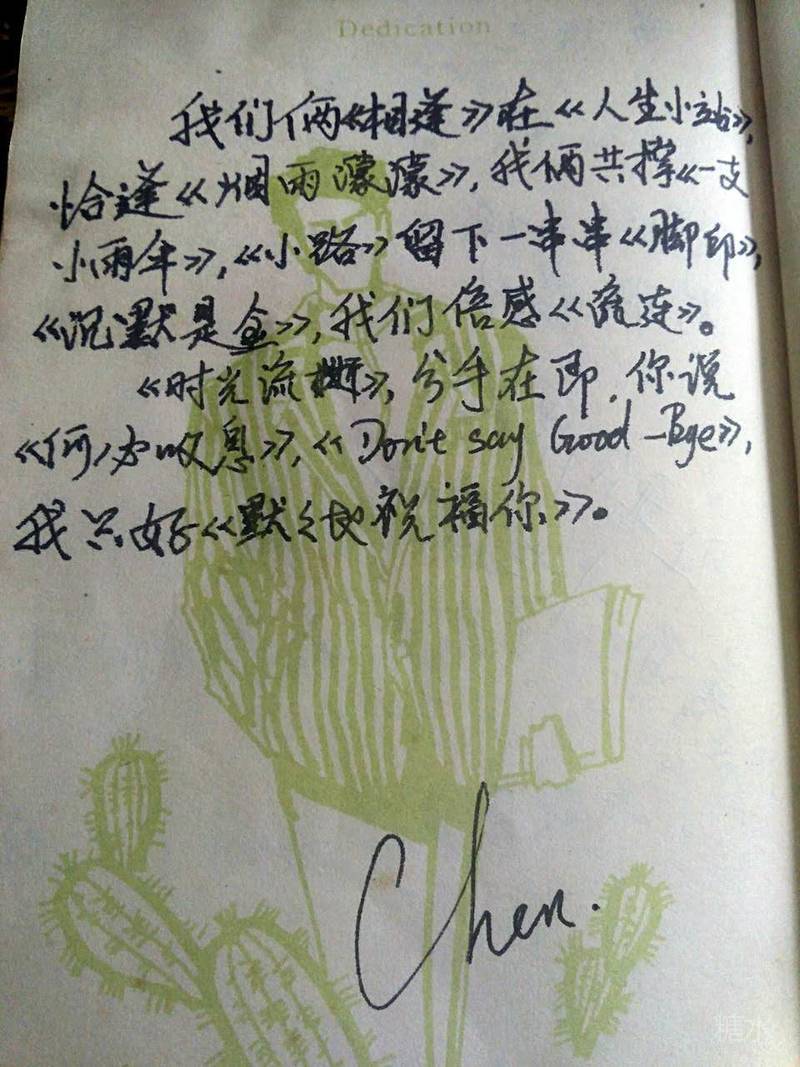 Dedication
我们俩《相逢》在《人生小站》,
恰逢《烟雨濛濛》,我俩共撑《一支
小雨伞》,《小路》留下一串串《脚印》,
《沉默是金》,我们倍感《流连》。
《时光流逝》,分手在即,你说
《何必叹息》,《Don't say Good-Bye》,
我只好《默々地祝福你》。
Chen.
糖水